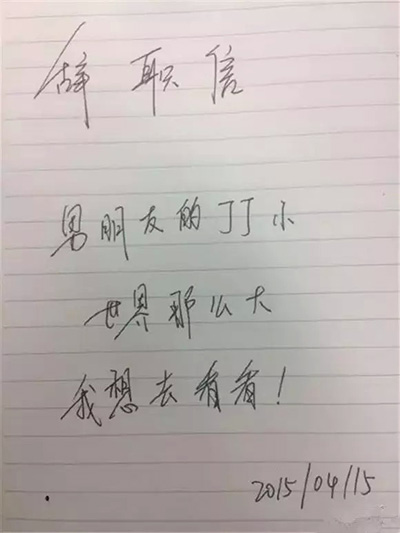 辞职信
男朋友的丁丁小
世界那么大
我想去看看！
2015/04/15